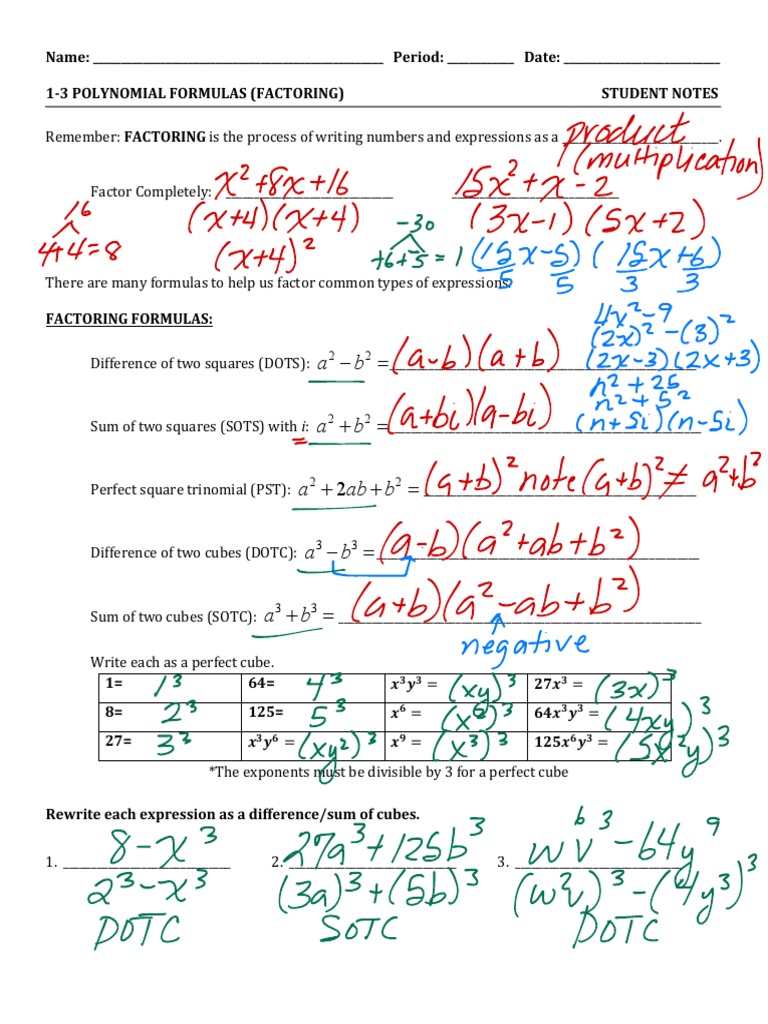 Name: ________ Period: ________ Date: ________
1-3 POLYNOMIAL FORMULAS (FACTORING) STUDENT NOTES
Remember: FACTORING is the process of writing numbers and expressions as a product.
(multiplication)
Factor Completely: x² + 8x + 16 15x² + x - 2
16 (x+4)(x+4) -30 (3x-1)(5x+2)
4+4=8 (x+4)² +6+-5=1 (15x-5)/5 (15x+6)/3
5 3
There are many formulas to help us factor common types of expressions.
FACTORING FORMULAS:
4x²-9
(2x)²-(3)²
Difference of two squares (DOTS): a² − b² = (a-b)(a+b) (2x-3)(2x+3)
n²+25
n²+5²
Sum of two squares (SOTS) with i: a² + b² = (a+bi)(a-bi) (n+5i)(n-5i)
Perfect square trinomial (PST): a² + 2ab + b² = (a+b)² note (a+b)² ≠ a²+b²
Difference of two cubes (DOTC): a³ − b³ = (a-b)(a²+ab+b²)
Sum of two cubes (SOTC): a³ + b³ = (a+b)(a²-ab+b²)
negative
Write each as a perfect cube.
1= 1³ 64= 4³ x³y³ = (xy)³ 27x³ = (3x)³
8= 2³ 125= 5³ x⁶ = (x²)³ 64x³y³ = (4xy)³
27= 3³ x³y⁶ = (xy²)³ x⁹ = (x³)³ 125x⁶y³ = (5x²y)³
*The exponents must be divisible by 3 for a perfect cube
Rewrite each expression as a difference/sum of cubes.
1. 8-x³ 2. 27a³+125b³ 3. w⁶v³-64y⁹
2³-x³ (3a)³+(5b)³ (w²v)³-(4y³)³
DOTC SOTC DOTC